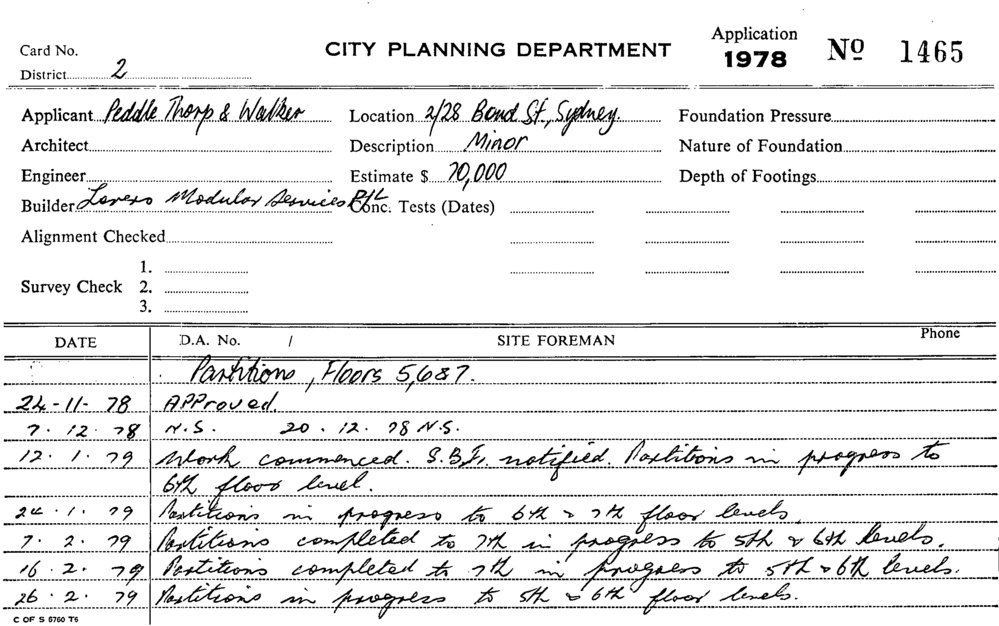 Card No.
CITY PLANNING DEPARTMENT
Application
1978 No 1465
District 2
Applicant Peddle Thorp & Walker
Location 2/28 Bond St., Sydney.
Foundation Pressure
Architect
Description Minor
Nature of Foundation
Engineer
Estimate $ 70,000
Depth of Footings
Builder Modular Services P/L
Conc. Tests (Dates)
Alignment Checked
Survey Check 1.
2.
3.
DATE D.A. No. / SITE FOREMAN Phone
Partitions, Floors 5,6&7.
24-11-78 APProved.
7. 12. 78 N.S. 20. 12. 78 N.S.
12. 1. 79 Work commenced. notified. Partitions in progress to
6th floor level.
24. 1. 79 Partitions in progress to 6th & 7th floor levels.
7. 2. 79 Partitions completed to 7th in progress to 5th & 6th levels.
16. 2. 79 Partitions completed to 7th in progress to 5th & 6th levels.
26. 2. 79 Partitions in progress to 5th & 6th floor levels.
C OF S 5760 T6